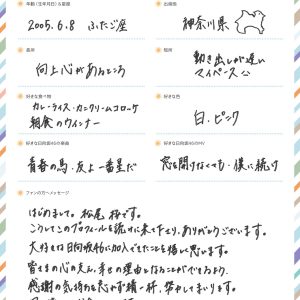 年齢(生年月日)&星座
2005.6.8 ふたご座
出身地
神奈川県
長所
向上心があるところ
短所
動き出しが遅い
マイペース
好きな食べ物
カレーライス・カニクリームコロッケ
朝食のウインナー
好きな色
白・ピンク
好きな日向坂46の楽曲
青春の馬・友よ 一番星だ
好きな日向坂46のMV
窓を開けなくても・僕に続け
ファンの方へメッセージ
はじめまして。松尾 桜です。
こうしてこのプロフィールを読みに来て下さり、ありがとうございます。
大好きな日向坂46に加入できたことを嬉しく思います。
皆さまの心の支え、幸せの理由となることができるよう、
感謝の気持ちを忘れず精一杯、努力してまいります。